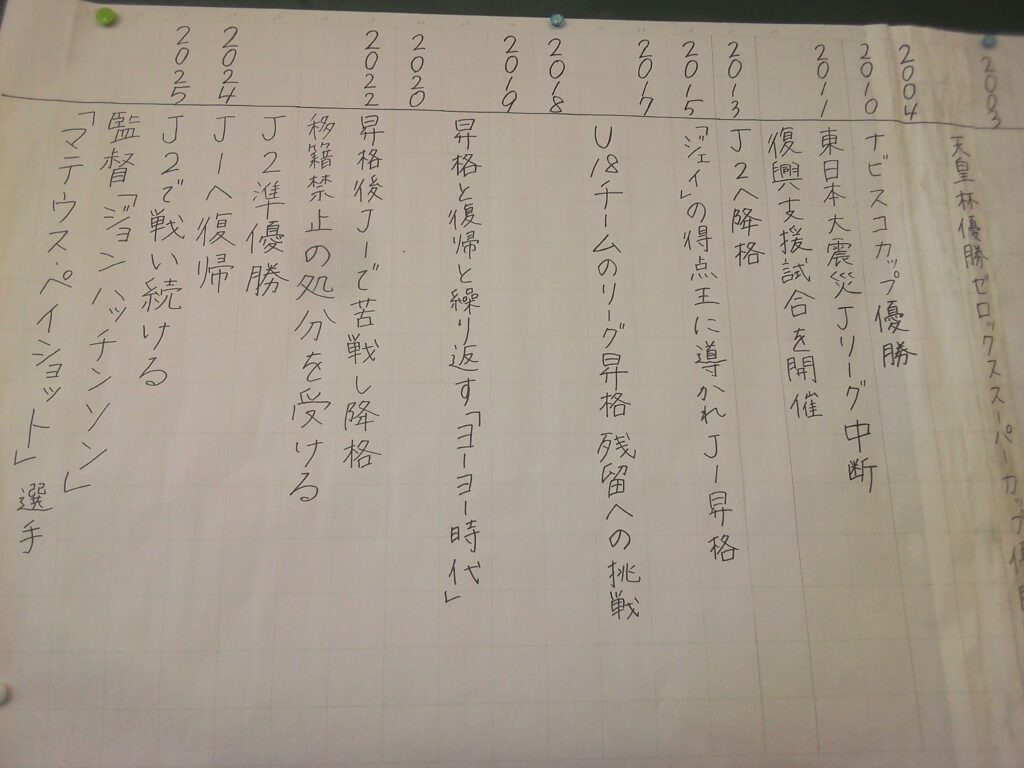 2003
天皇杯優勝ゼロックススーパーカップ優勝
2004
ナビスコカップ優勝
2010
東日本大震災Jリーグ中断
2011
復興支援試合を開催
2013
J2へ降格
2015
「ジェイ」の得点王に導かれJ1昇格
2017
U18チームのリーグ昇格 残留への挑戦
2018
2019
昇格と復帰と繰り返す「ヨーヨー時代」
2020
2022
昇格後J1で苦戦し降格
移籍禁止の処分を受ける
J2準優勝
2024
J1へ復帰
2025
J2で戦い続ける
監督「ジョンハッチンソン」
「マテウス・ペイショット」選手